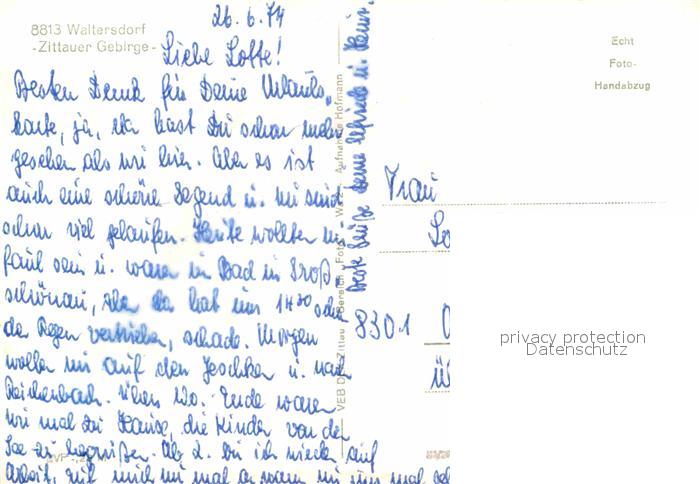 8813 Waltersdorf
-Zittauer Gebirge-
26.6.74
Liebe Lotte!
Besten Dank für Deine Urlaubs-
karte, ja, da hast Du schon mehr
gesehen als wir hier. Aber es ist
auch eine schöne Gegend u. wir sind
schon viel gelaufen. Heute wollten wir
faul sein u. waren im Bad in Groß-
schönau, aber da hat uns 14³⁰ schon
der Regen vertrieben, schade. Morgen
wollen wir auf den Jeschken u. nach
Reichenbach. Übers Wo. Ende waren
wir mal zu Hause, die Kinder von der
See zu begrüßen. Ab 2. bin ich wieder auf
Arbeit, ruf mich mal an wenn
Beste Grüße Deine u.
VEB Zittau Bereich Foto Aufnahme Hofmann
Echt
Foto-
Handabzug
Frau
8301
privacy protection
Datenschutz